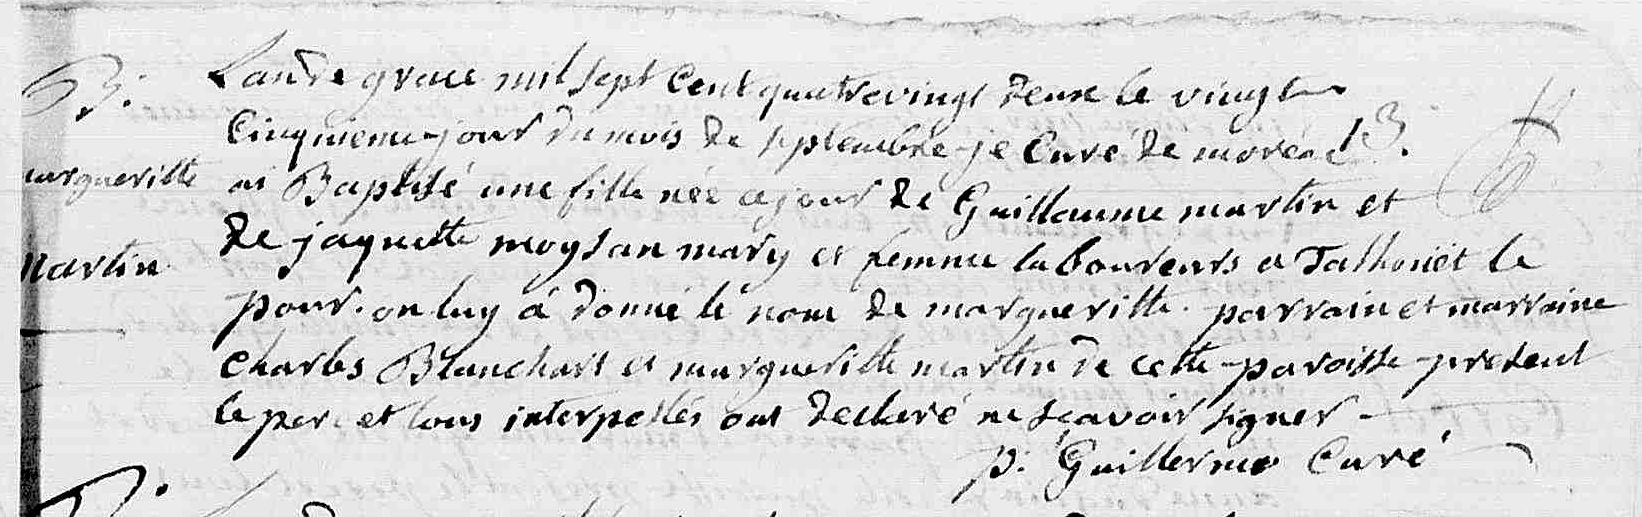 B.
margueritte
Martin
L'an de grace mil sept cent quatrevingt deux le vingt
Cinquieme jour du mois de septembre je Curé de moréac
13.
ai Baptisé une fille née ce jour de Guillaume martin et
de jaquette moysan mary et femme laboureurs a Talhoüet le
pour. on luy a donné le nom de margueritte. parrain et marraine
charles Blanchart et margueritte martin de cette paroisse present
le per et tous interpellés ont declaré ne sçavoir signer
p. Guillermo Curé